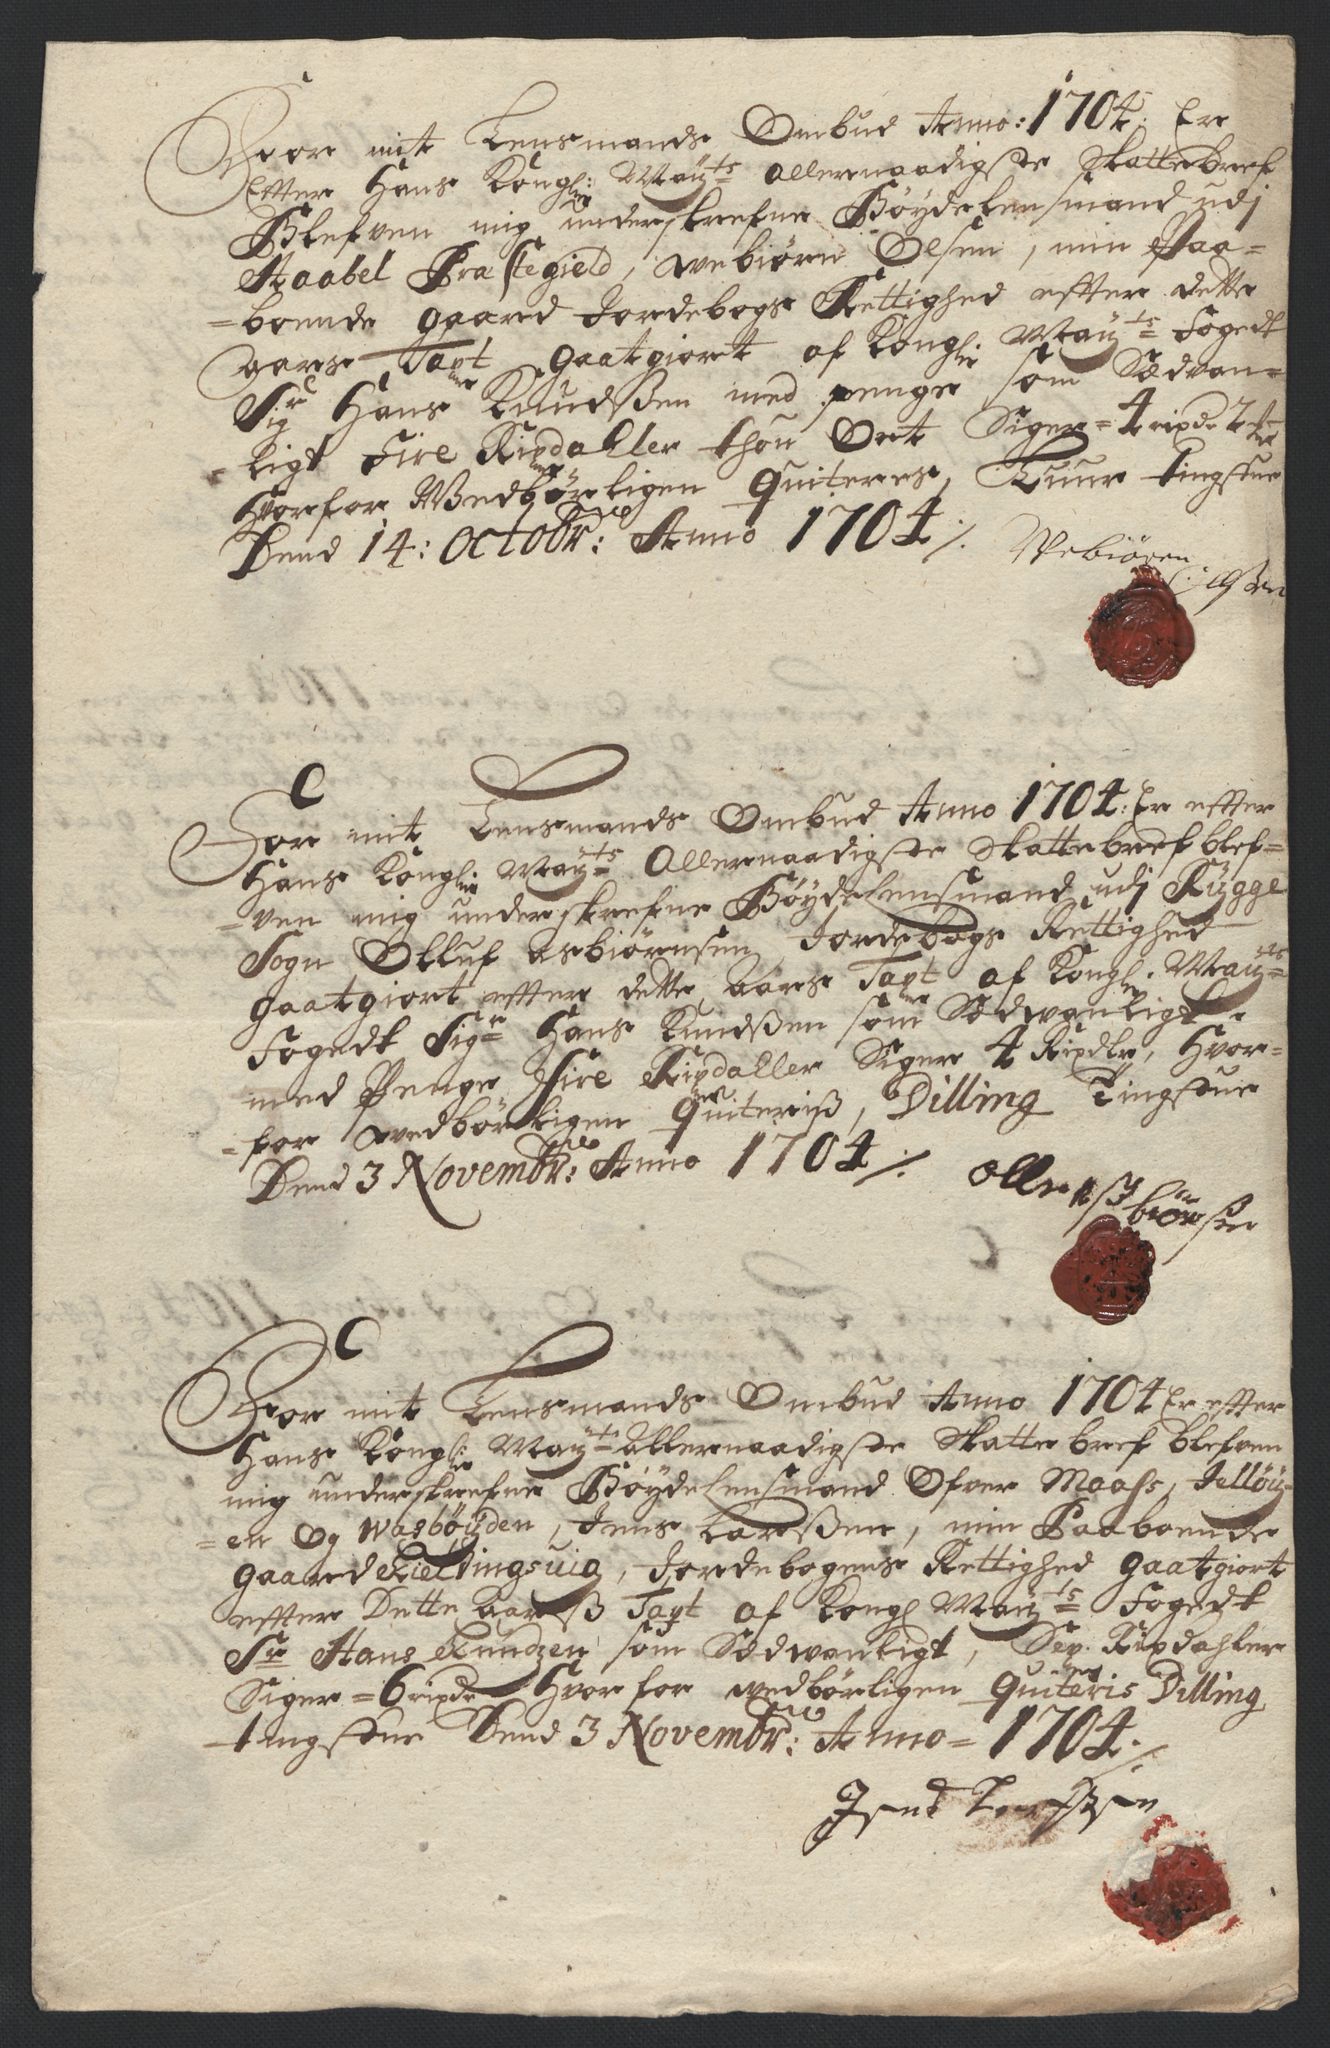 For mit Lensmands Ombud Anno: 1704: Er
Efter Hans Kongl: May:ts allernaadigste Skattebref
Blefven mig underskrefne Bøydelensmand udj
Raabel Præstegield, Webiørn Olsen, min Paa=
=boende gaard Jordebogs Rettighed efter dette
aars Taxt gaatgiort af Kongl: May:ts Foged
Sigr Hans Knudsen med penge som Sædvan=
=ligt Fire Rixdaller thou Ort Siger = 4 rixdr 2
Hvorfor Wedbørligen Quiteres, Tingstue
Dend 14: Octobr: Anno 1704 /.
Webiøren
Olsen
For mit Lensmands Ombud Anno 1704: Er efter
Hans Kongl: May:ts Allernaadigste Skattebref blef=
=ven mig underskrefne Bøydelensmand udj Rygge
Sogn Olluf Asbiørnsen Jordebogs Rettighed
gaatgiort efter dette aars Taxt af Kongl: May:ts
Fogedt Sigr Hans Knudsen som Sædwanligt
med Penge Fire Rixdaller Siger 4 Rixdlr, Hvor=
=for wedbørligen Quiteriß, Dilling Tingstue
Dend 3 Novembr: Anno 1704 /.
Olle Aßbiørnßen
For mit Lensmands Ombud Anno 1704 Er efter
Hans Kongl: May:ts Allernaadigste Skatte bref blefven
mig underskrefne Bøydelensmand Ofver Moass, Jelløy=
=en Og Wasbøyden, Jens Larsen, min Paaboende
gaard Kieldingsuig, Jordebogens Rettighed gaatgiort
efter Dette aarß Taxt af Kongl May:ts Fogedt
Sr Hans Knudzen som Sædwanligt, Sex Rixdahler
Siger = 6 rixdr Hvorfor wedbørligen Quiteris Dilling
tingstue Dend 3 Novembr: Anno = 1704 /.
Jens Larssen